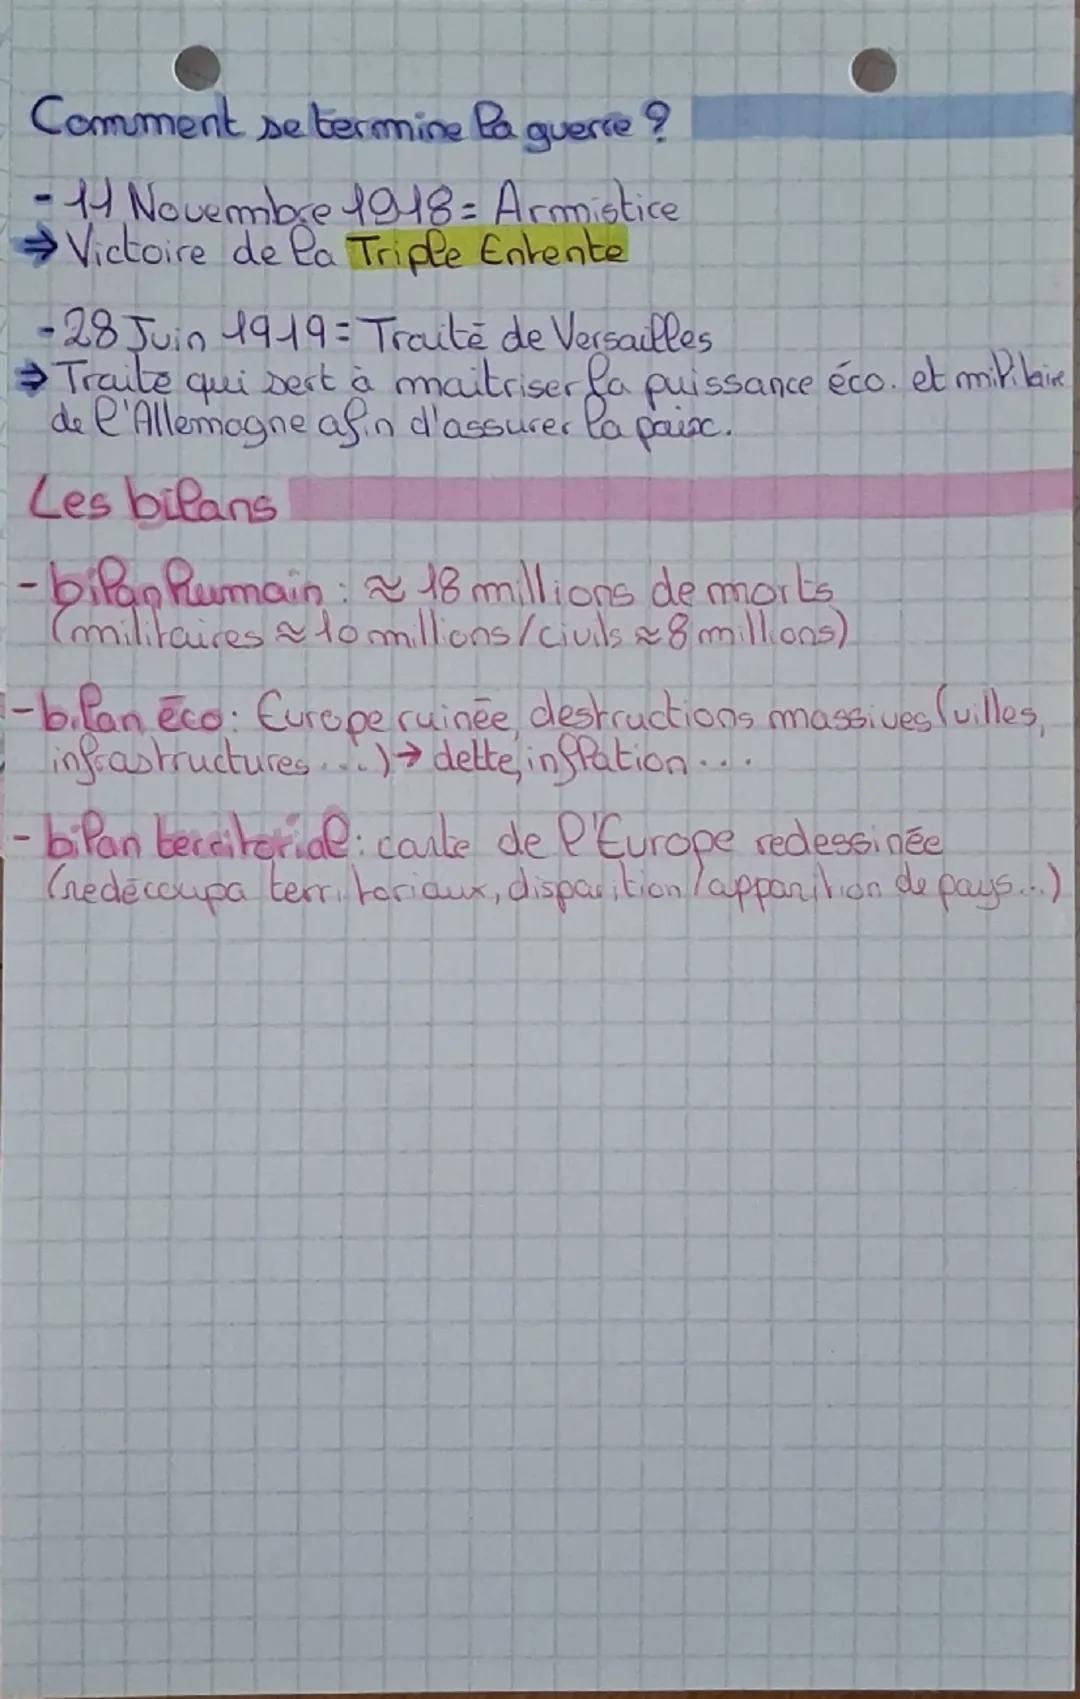 Comment se termine la guerre ?
- 11 Novembre 1918 = Armistice
⇒ Victoire de la Triple Entente
- 28 Juin 1919 = Traité de Versailles
⇒ Traité qui sert à maitriser la puissance éco. et militaire
de l'Allemagne afin d'assurer la paix.
Les bilans
- bilan humain : ≈ 18 millions de morts
(militaires ≈ 10 millions / civils ≈ 8 millions)
- bilan éco : Europe ruinée, destructions massives (villes,
infrastructures ...) → dette, inflation ...
- bilan territorial : carte de l'Europe redessinée
(redécoupa territoriaux, disparition / apparition de pays...)